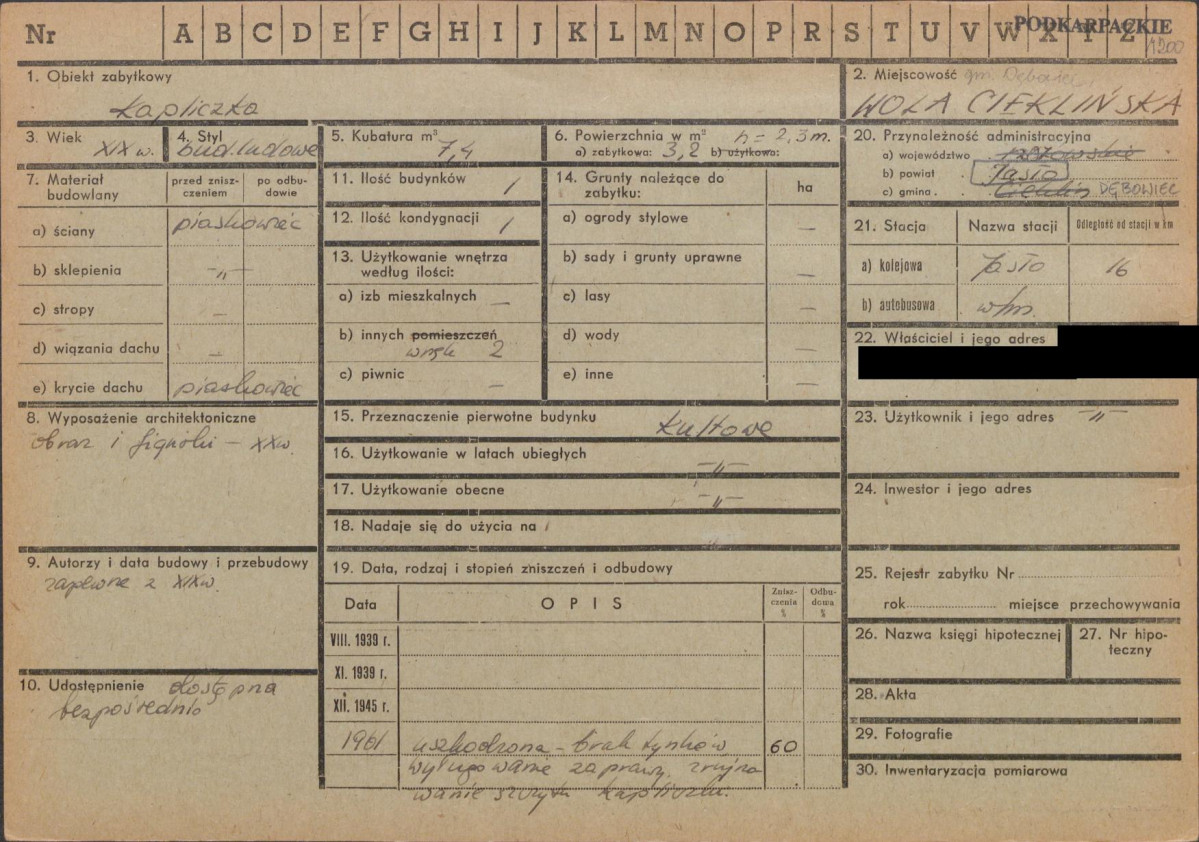 Nr A B C D E F G H I J K L M N O P R S T U V W X Y Z
PODKARPACKIE
1200
1. Obiekt zabytkowy
kapliczka
2. Miejscowość gm. Dębowiec
WOLA CIEKLIŃSKA
3. Wiek
XIX w.
4. Styl
bud. ludowe
5. Kubatura m³
7,4
6. Powierzchnia w m² h = 2,3 m.
a) zabytkowa: 3,2 b) użytkowa:
7. Materiał budowlany
przed zniszczeniem
po odbudowie
a) ściany piaskowiec
b) sklepienia -„-
c) stropy –
d) wiązania dachu –
e) krycie dachu piaskowiec
8. Wyposażenie architektoniczne
obraz i figurki – XX w.
9. Autorzy i data budowy i przebudowy
zapewne z XIX w.
10. Udostępnienie dostępna
bezpośrednio
11. Ilość budynków 1
12. Ilość kondygnacji 1
13. Użytkowanie wnętrza
według ilości:
a) izb mieszkalnych –
b) innych pomieszczeń
wnęk 2
c) piwnic –
14. Grunty należące do
zabytku:
ha
a) ogrody stylowe –
b) sady i grunty uprawne –
c) lasy –
d) wody –
e) inne –
15. Przeznaczenie pierwotne budynku kultowe
16. Użytkowanie w latach ubiegłych -„-
17. Użytkowanie obecne -„-
18. Nadaje się do użycia na
19. Data, rodzaj i stopień zniszczeń i odbudowy
Data
O P I S
Zniszczenia %
Odbudowa %
VIII. 1939 r.
XI. 1939 r.
XII. 1945 r.
1961 uszkodzona – brak tynków 60
wyługowanie zaprawy, zrujno
wanie szczytu kapliczki.
20. Przynależność administracyjna
a) województwo rzeszowskie
b) powiat Jasło
c) gmina Cieklin DĘBOWIEC
21. Stacja
Nazwa stacji
Odległość od stacji w km
a) kolejowa Jasło 16
b) autobusowa w/m.
22. Właściciel i jego adres
23. Użytkownik i jego adres -„-
24. Inwestor i jego adres
25. Rejestr zabytku Nr
rok miejsce przechowywania
26. Nazwa księgi hipotecznej
27. Nr hipo-
teczny
28. Akta
29. Fotografie
30. Inwentaryzacja pomiarowa